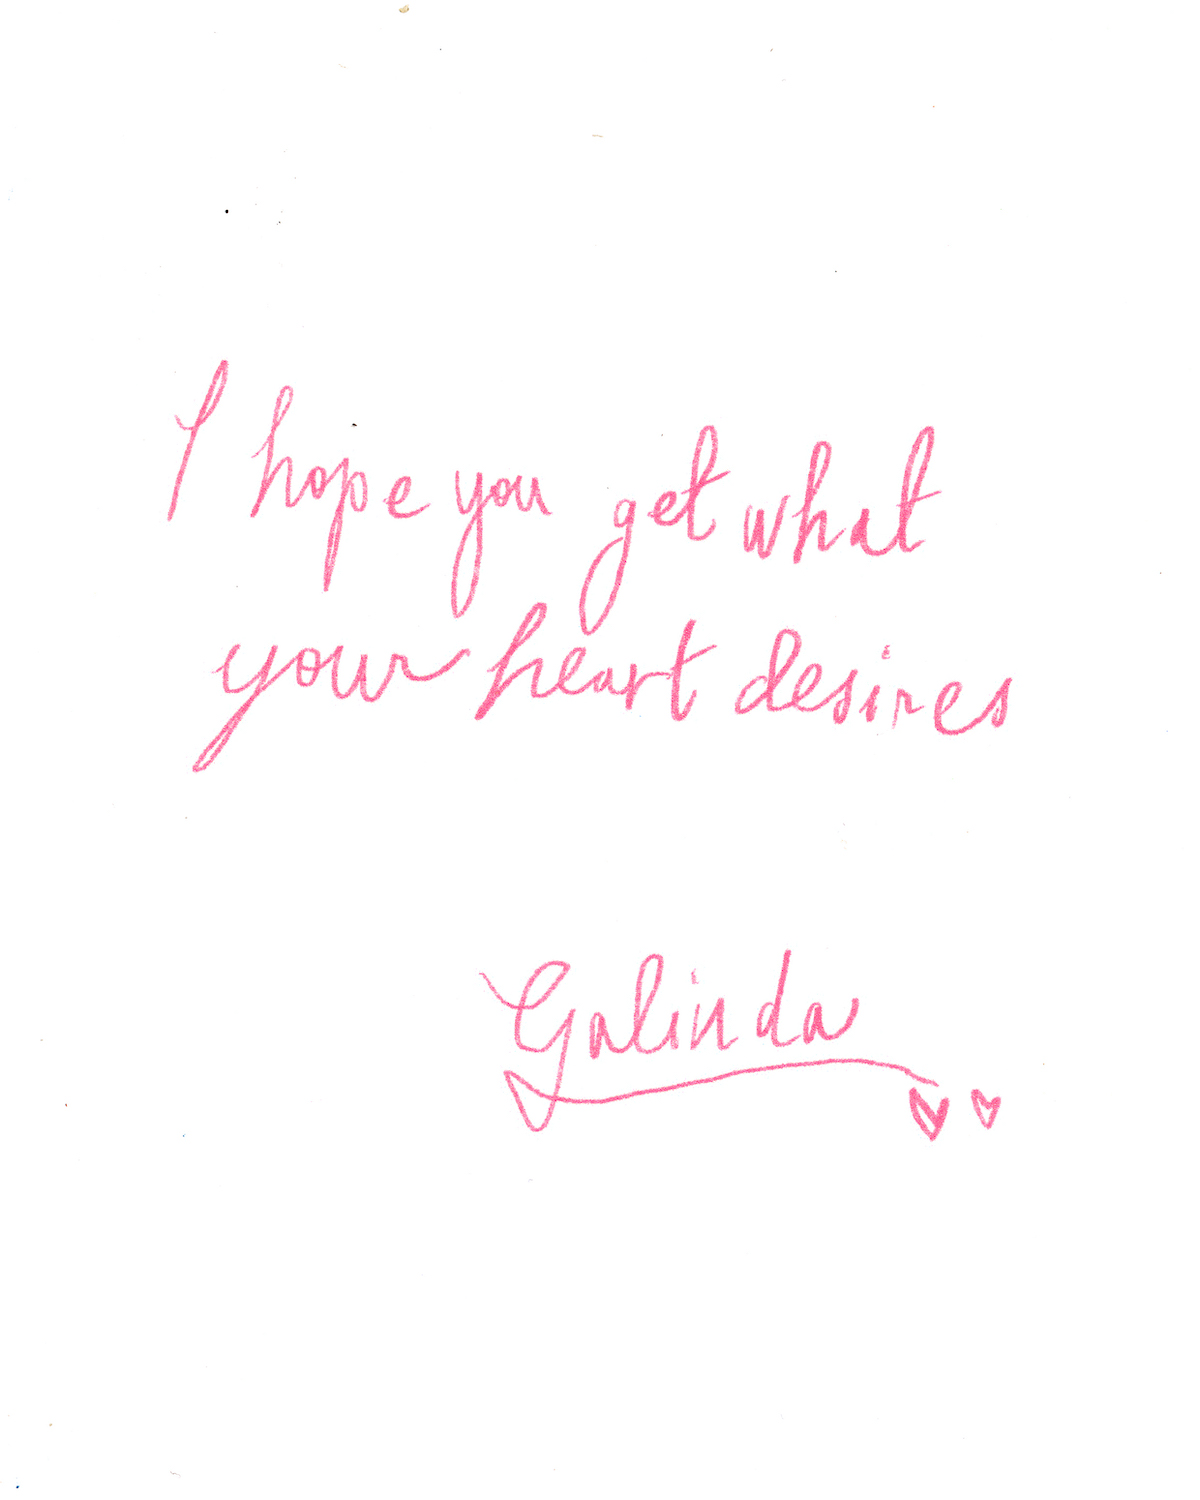 I hope you get what
your heart desires
Galinda